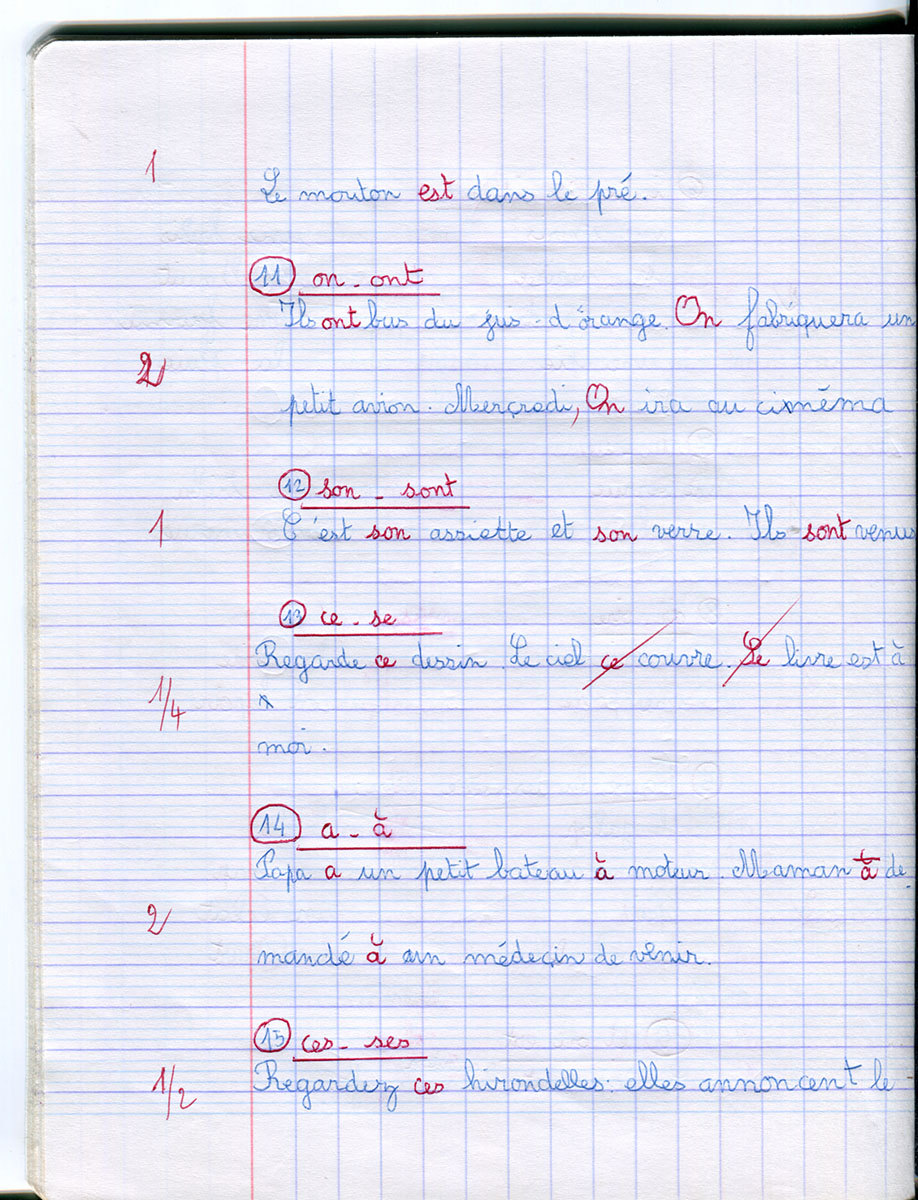 1
Le mouton est dans le pré.
11 on - ont
Ils ont bus du jus - d'orange. On fabriquera un
2
petit avion. Merçredi, On ira au cinéma
12 son - sont
1 C'est son assiette et son verre. Ils sont venus
13 ce - se
Regarde ce dessin. Le ciel ce couvre. Se livre est à
1/4
moi.
14 a - à
Papa a un petit bateau à moteur. Maman à de
2
mandé à un médeçin de venir.
15 ces - ses
1/2 Regarderz ces hirondelles. elles annoncent le